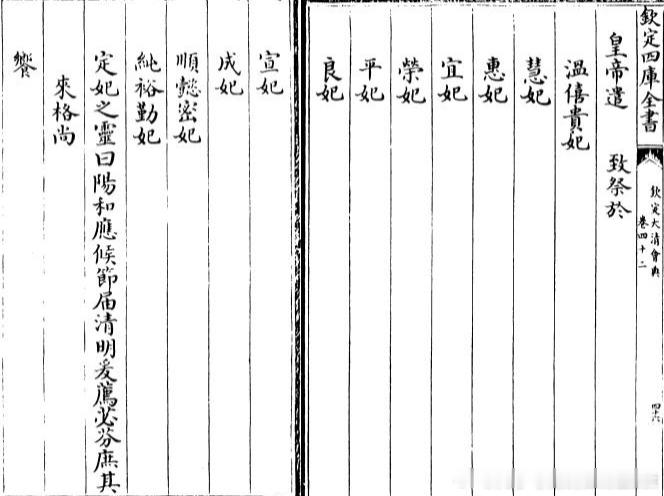 欽定四庫全書
欽定大清會典
卷四十二
四十六
皇帝遣 致祭於
溫僖貴妃
慧妃
惠妃
宜妃
榮妃
平妃
良妃
宣妃
成妃
順懿密妃
純裕勤妃
定妃之靈曰陽和應候節届清明爰薦苾芬庶其
來格尚
饗